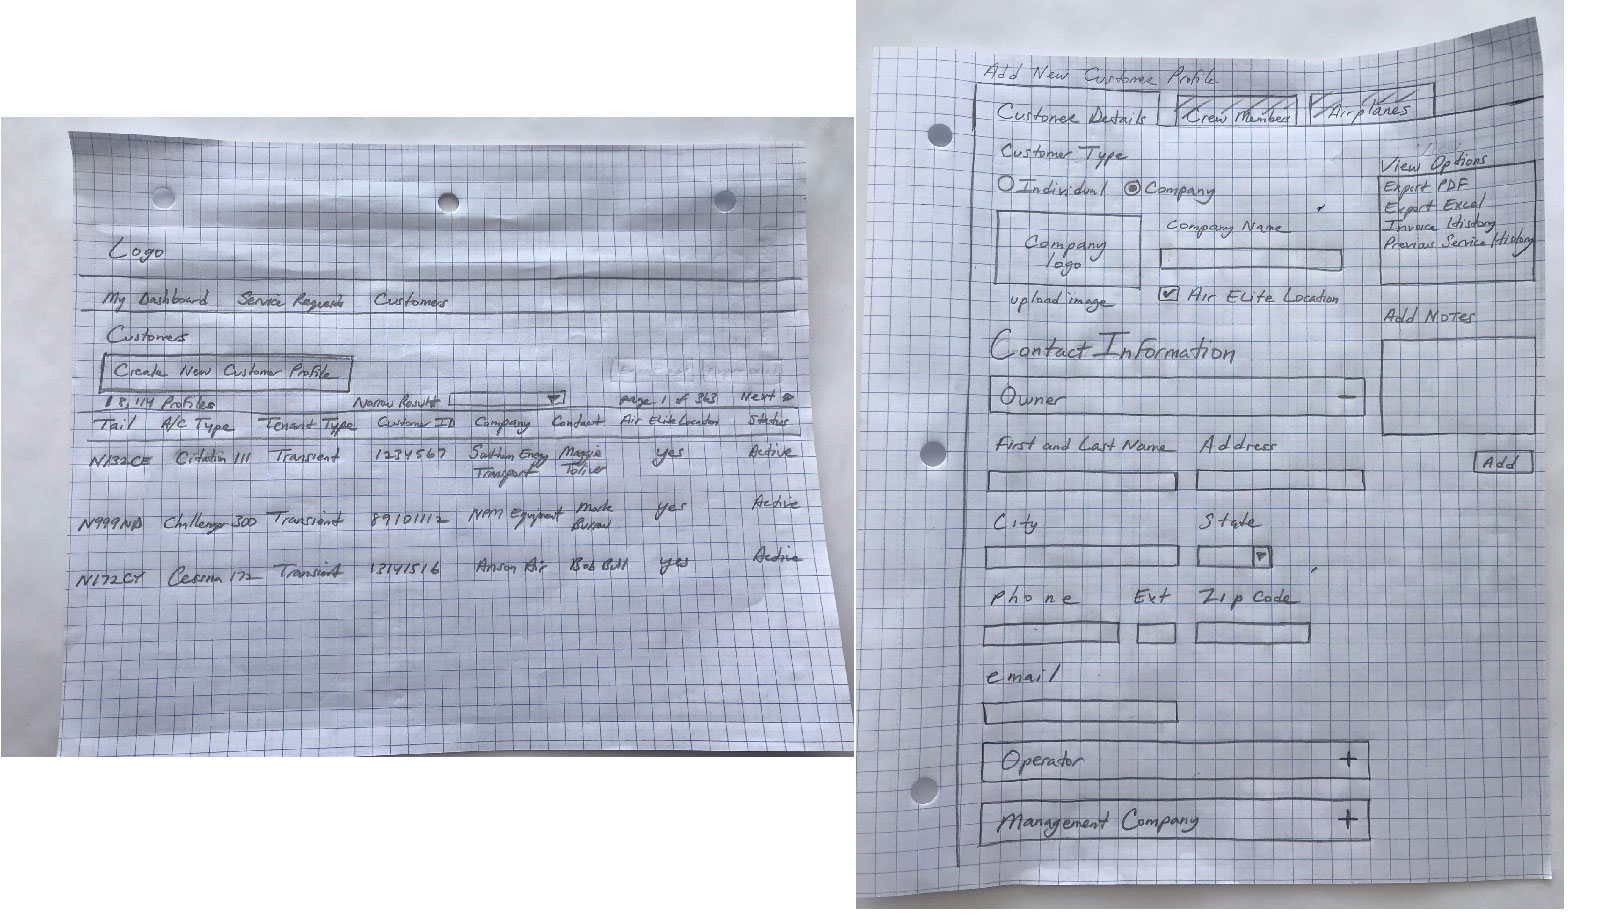 Logo
My Dashboard Service Requests Customers
Customers
Create New Customer Profile
Profiles Narrow Results Page 1 of 363 Next
Tail A/C Type Tenant Type Customer ID Company Contact Air Elite Location Status
N132CE Citation 111 Transient 1234567 Southern Energy Maggie yes Active
Transport Toliver
N999ND Challenger 300 Transient 89101112 NPM Equipment Mark yes Active
Burrow
N172CY Cessna 172 Transient 13141516 Anson Air Bob Bull yes Active
Add New Customer Profile
Customer Details Crew Member Airplanes
Customer Type
Individual Company
Company
logo
upload image
Company Name
Air Elite Location
Contact Information
Owner −
First and Last Name Address
City State
Phone Ext Zip Code
email
Operator +
Management Company +
View Options
Export PDF
Export Excel
Invoice History
Previous Service History
Add Notes
Add